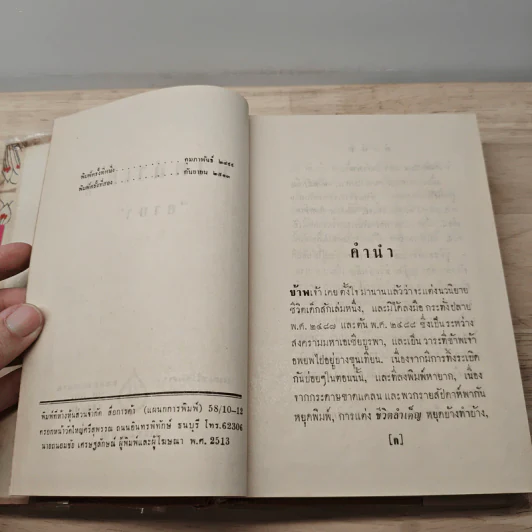 พิมพ์ครั้งที่หนึ่ง กุมภาพันธ์
พิมพ์ครั้งที่สอง กันยายน ๒๕๑๓
พิมพ์ที่ห้างหุ้นส่วนจำกัด (แผนกการพิมพ์) 58/10-12
ตรอกหน้าวัดใหญ่ศรีสุพรรณ ถนนอินทรพิทักษ์ ธนบุรี โทร.62306
เศรษฐลักษณ์ ผู้พิมพ์และผู้โฆษณา พ.ศ. 2513
คำนำ
ข้าพเจ้าเคยตั้งใจมานานแล้วว่าจะแต่งนวนิยาย
ชีวิตเด็กสักเล่มหนึ่ง, และมีได้ลงมือกระทั่งปลาย
พ.ศ. ๒๔๘๗ และต้น พ.ศ. ๒๔๘๘ ซึ่งเป็นระหว่าง
สงครามมหาเอเซียบูรพา, และเป็นวาระที่ข้าพเจ้า
อพยพไปอยู่บางขุนเทียน. เนื่องจากมีการทิ้งระเบิด
กันบ่อยๆในตอนนั้น, และที่ลงพิมพ์หายาก, เนื่อง
จากกระดาษขาดแคลน และพวกรายสัปดาห์พากัน
หยุดพิมพ์, การแต่ง หยุดยั้งทำยั้ง,
[ก]